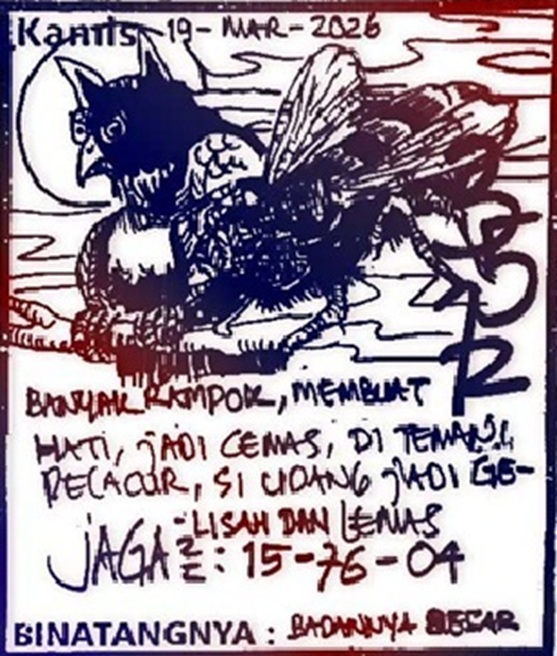 Kamis 19-MAR-2026
BANYAK RAMPOK, MEMBUAT
HATI, jADI CEMAS, DI TEMANI,
PELACUR, SI HIDUNG jADI GE-
-LISAH DAN LEMAS
jAGA : 15-76-04
BINATANGNYA : BADANNYA BESAR